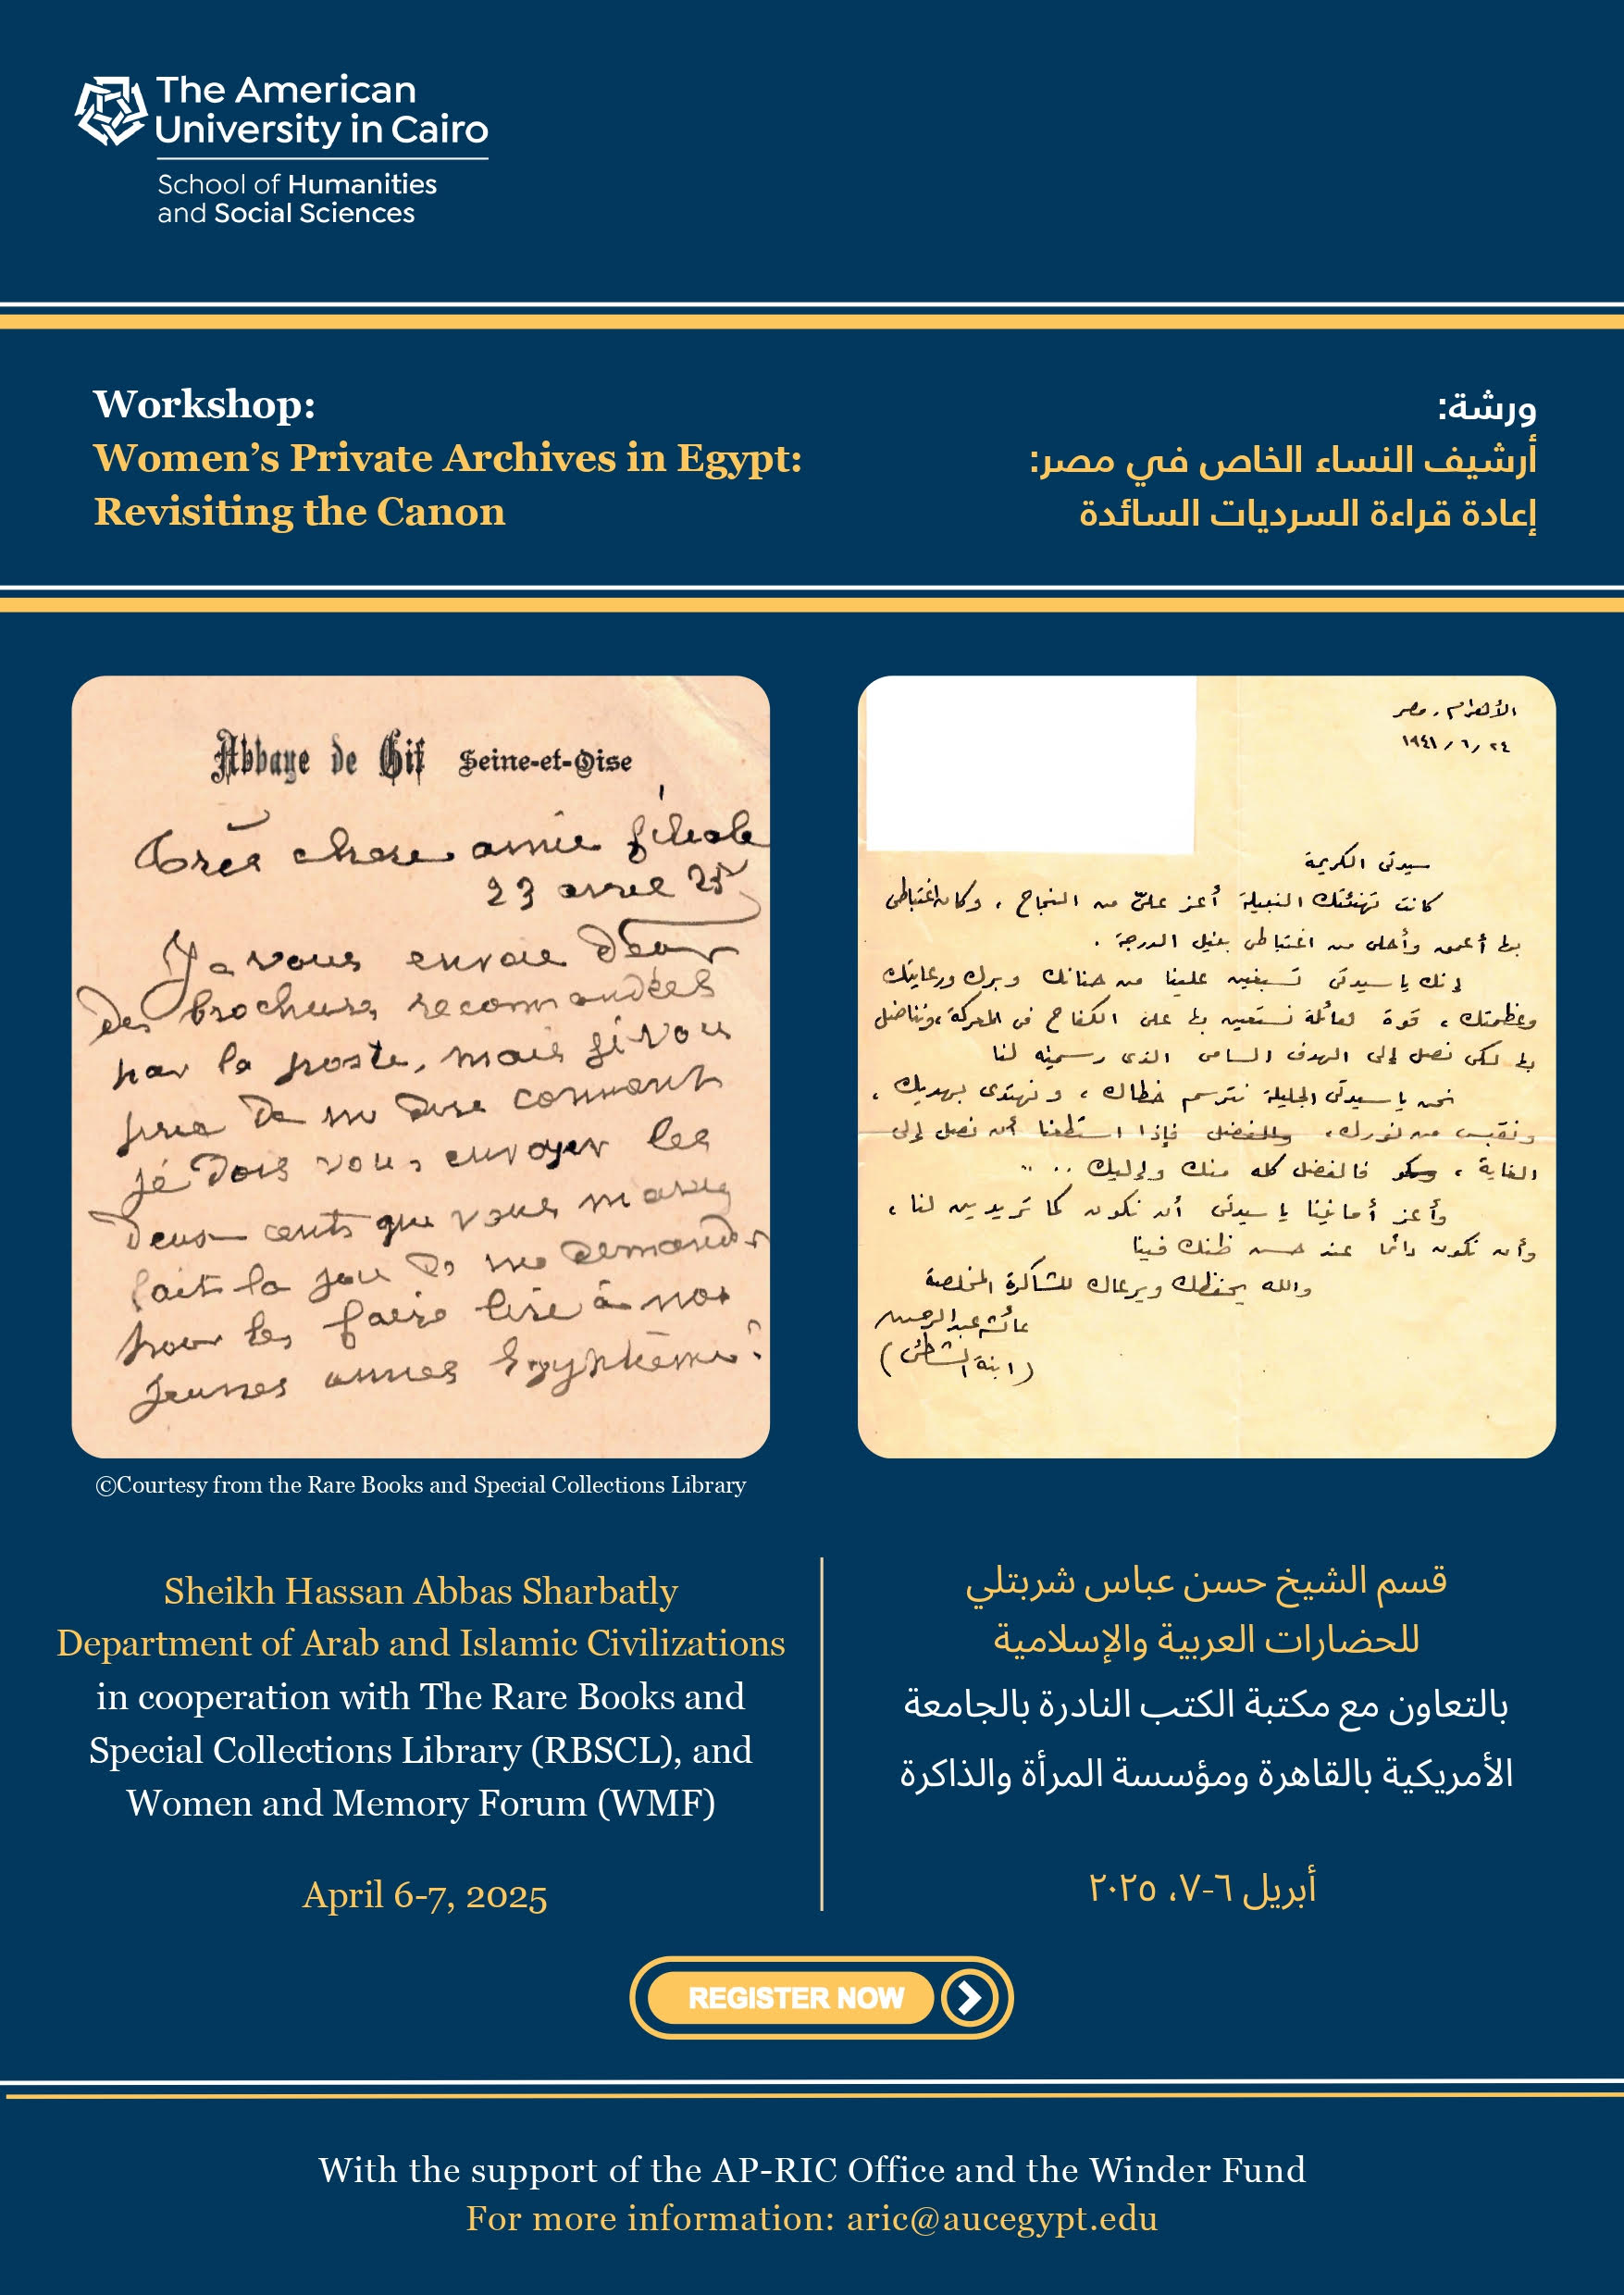 The American
University in Cairo
School of Humanities
and Social Sciences
Workshop:
Women's Private Archives in Egypt:
Revisiting the Canon
ورشة:
أرشيف النساء الخاص في مصر:
إعادة قراءة السرديات السائدة
Abbaye de Gif Seine-et-Oise
chere amie filiale
23 avril
Je vous envoie deux
des brochures recommandées
par la poste, mais si vous
prie de me dire comment
je dois vous envoyer les
deux cents que vous
me
pour les faire lire à nos
jeunes amies Egyptiennes?
©Courtesy from the Rare Books and Special Collections Library
الأهرام، مصر
٢٤ / ٦ / ١٩٤١
سيدتى الكريمة
كانت تهنئتك النبيلة أعز علىّ من النجاح ، وكان اغتباطى
بها أعمق وأحلى من اغتباطى بنيل الدرجة .
إنك يا سيدتى تسبغين علينا من حنانك وبرك ورعايتك
وعظمتك ، قوة نستعين بها على الكفاح فى المعركة ، ونناضل
بها لكى نصل إلى الهدف السامى الذى رسمته لنا
نحن يا سيدتى الجليلة نترسم خطاك ، ونهتدى بهديك ،
ونقبس من نورك ، والفضل فإذا استطعنا أن نصل إلى
الغاية ، فالفضل كله منك وإليك . . ..
وأعز أمانينا يا سيدتى أن نكون كما تريدين لنا ،
وأن نكون دائما عند حسن ظنك فينا
والله يحفظك ويرعاك للشاكرة المخلصة
عائشة عبد الرحمن
(ابنة الشاطئ)
Sheikh Hassan Abbas Sharbatly
Department of Arab and Islamic Civilizations
in cooperation with The Rare Books and
Special Collections Library (RBSCL), and
Women and Memory Forum (WMF)
April 6-7, 2025
قسم الشيخ حسن عباس شربتلي
للحضارات العربية والإسلامية
بالتعاون مع مكتبة الكتب النادرة بالجامعة
الأمريكية بالقاهرة ومؤسسة المرأة والذاكرة
أبريل ٦-٧، ٢٠٢٥
REGISTER NOW
With the support of the AP-RIC Office and the Winder Fund
For more information: aric@aucegypt.edu